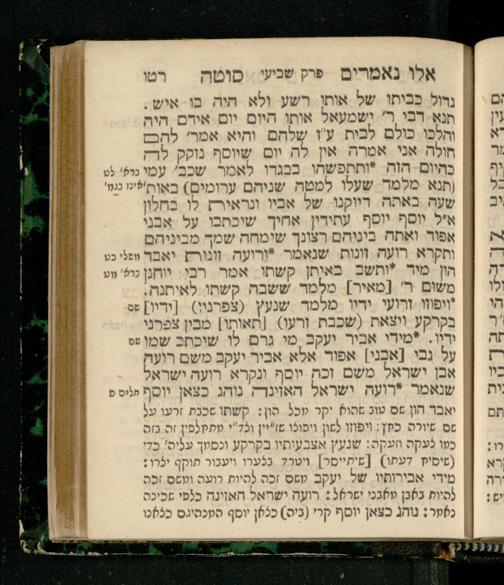 אלו נאמרים פרק שביעי סוטה רטו
גדול כביתו של אותו רשע ולא היה בו איש.
תנא דבי ר' ישמעאל אותו היום יום אידם היה
והלכו כולם לבית ע"ז שלהם והיא אמר' להם
חולה אני אמרה אין לה יום שיוסף נזקק לה
כהיום הזה *ותתפשהו בבגדו לאמר שכב' עמי ברא' לט
(תנא מלמד שעלו למטה שניהם ערומים) באות' אינו בגמ'
שעה באתה דיוקנו של אביו ונראית לו בחלון
א"ל יוסף יוסף עתידין אחיך שיכתבו על אבני
אפוד ואתה ביניהם רצונך שימחה שמך מביניהם
ותקרא רועה זונות שנאמר *ורועה זונות יאבד משלי כט
הון מיד *ותשב באיתן קשתו אמר רבי יוחנן ברא' מט
משום ר' [מאיר] מלמד ששבה קשתו לאיתנה.
*ויפוזו זרועי ידיו מלמד שנעץ (צפרניו) [ידיו] שם
בקרקע ויצאת (שכבת זרעו) [תאותו] מבין צפרני
ידיו. *מידי אביר יעקב מי גרם לו שיכתב שמו שם
על גבי [אבני] אפוד אלא אביר יעקב משם רועה
אבן ישראל משם זכה יוסף ונקרא רועה ישראל
שנאמר *רועה ישראל האזינה נוהג כצאן יוסף תלים פ
יאבד הון שם טוב שהוא יקר מכל הון: קשתו שכבת זרעו על
שם יורה כחץ: ויפוזו לשון ויפוצו
כמו לעקה וזעקה: שנעץ אצבעותיו בקרקע ונסמך עליה' כדי
(שיסיח דעתו) [שיתייסר] ויטרד בצערו ויעבור תוקף יצרו:
מידי אבירותיו של יעקב משם זכה להיות רועה ומשם זכה
להיות באבן מאבני ישראל: רועה ישראל האזינה כלפי שכינה
נאמר: נוהג כצאן יוסף קרי (ביה) כצאן יוסף המנהיגם כצאנו